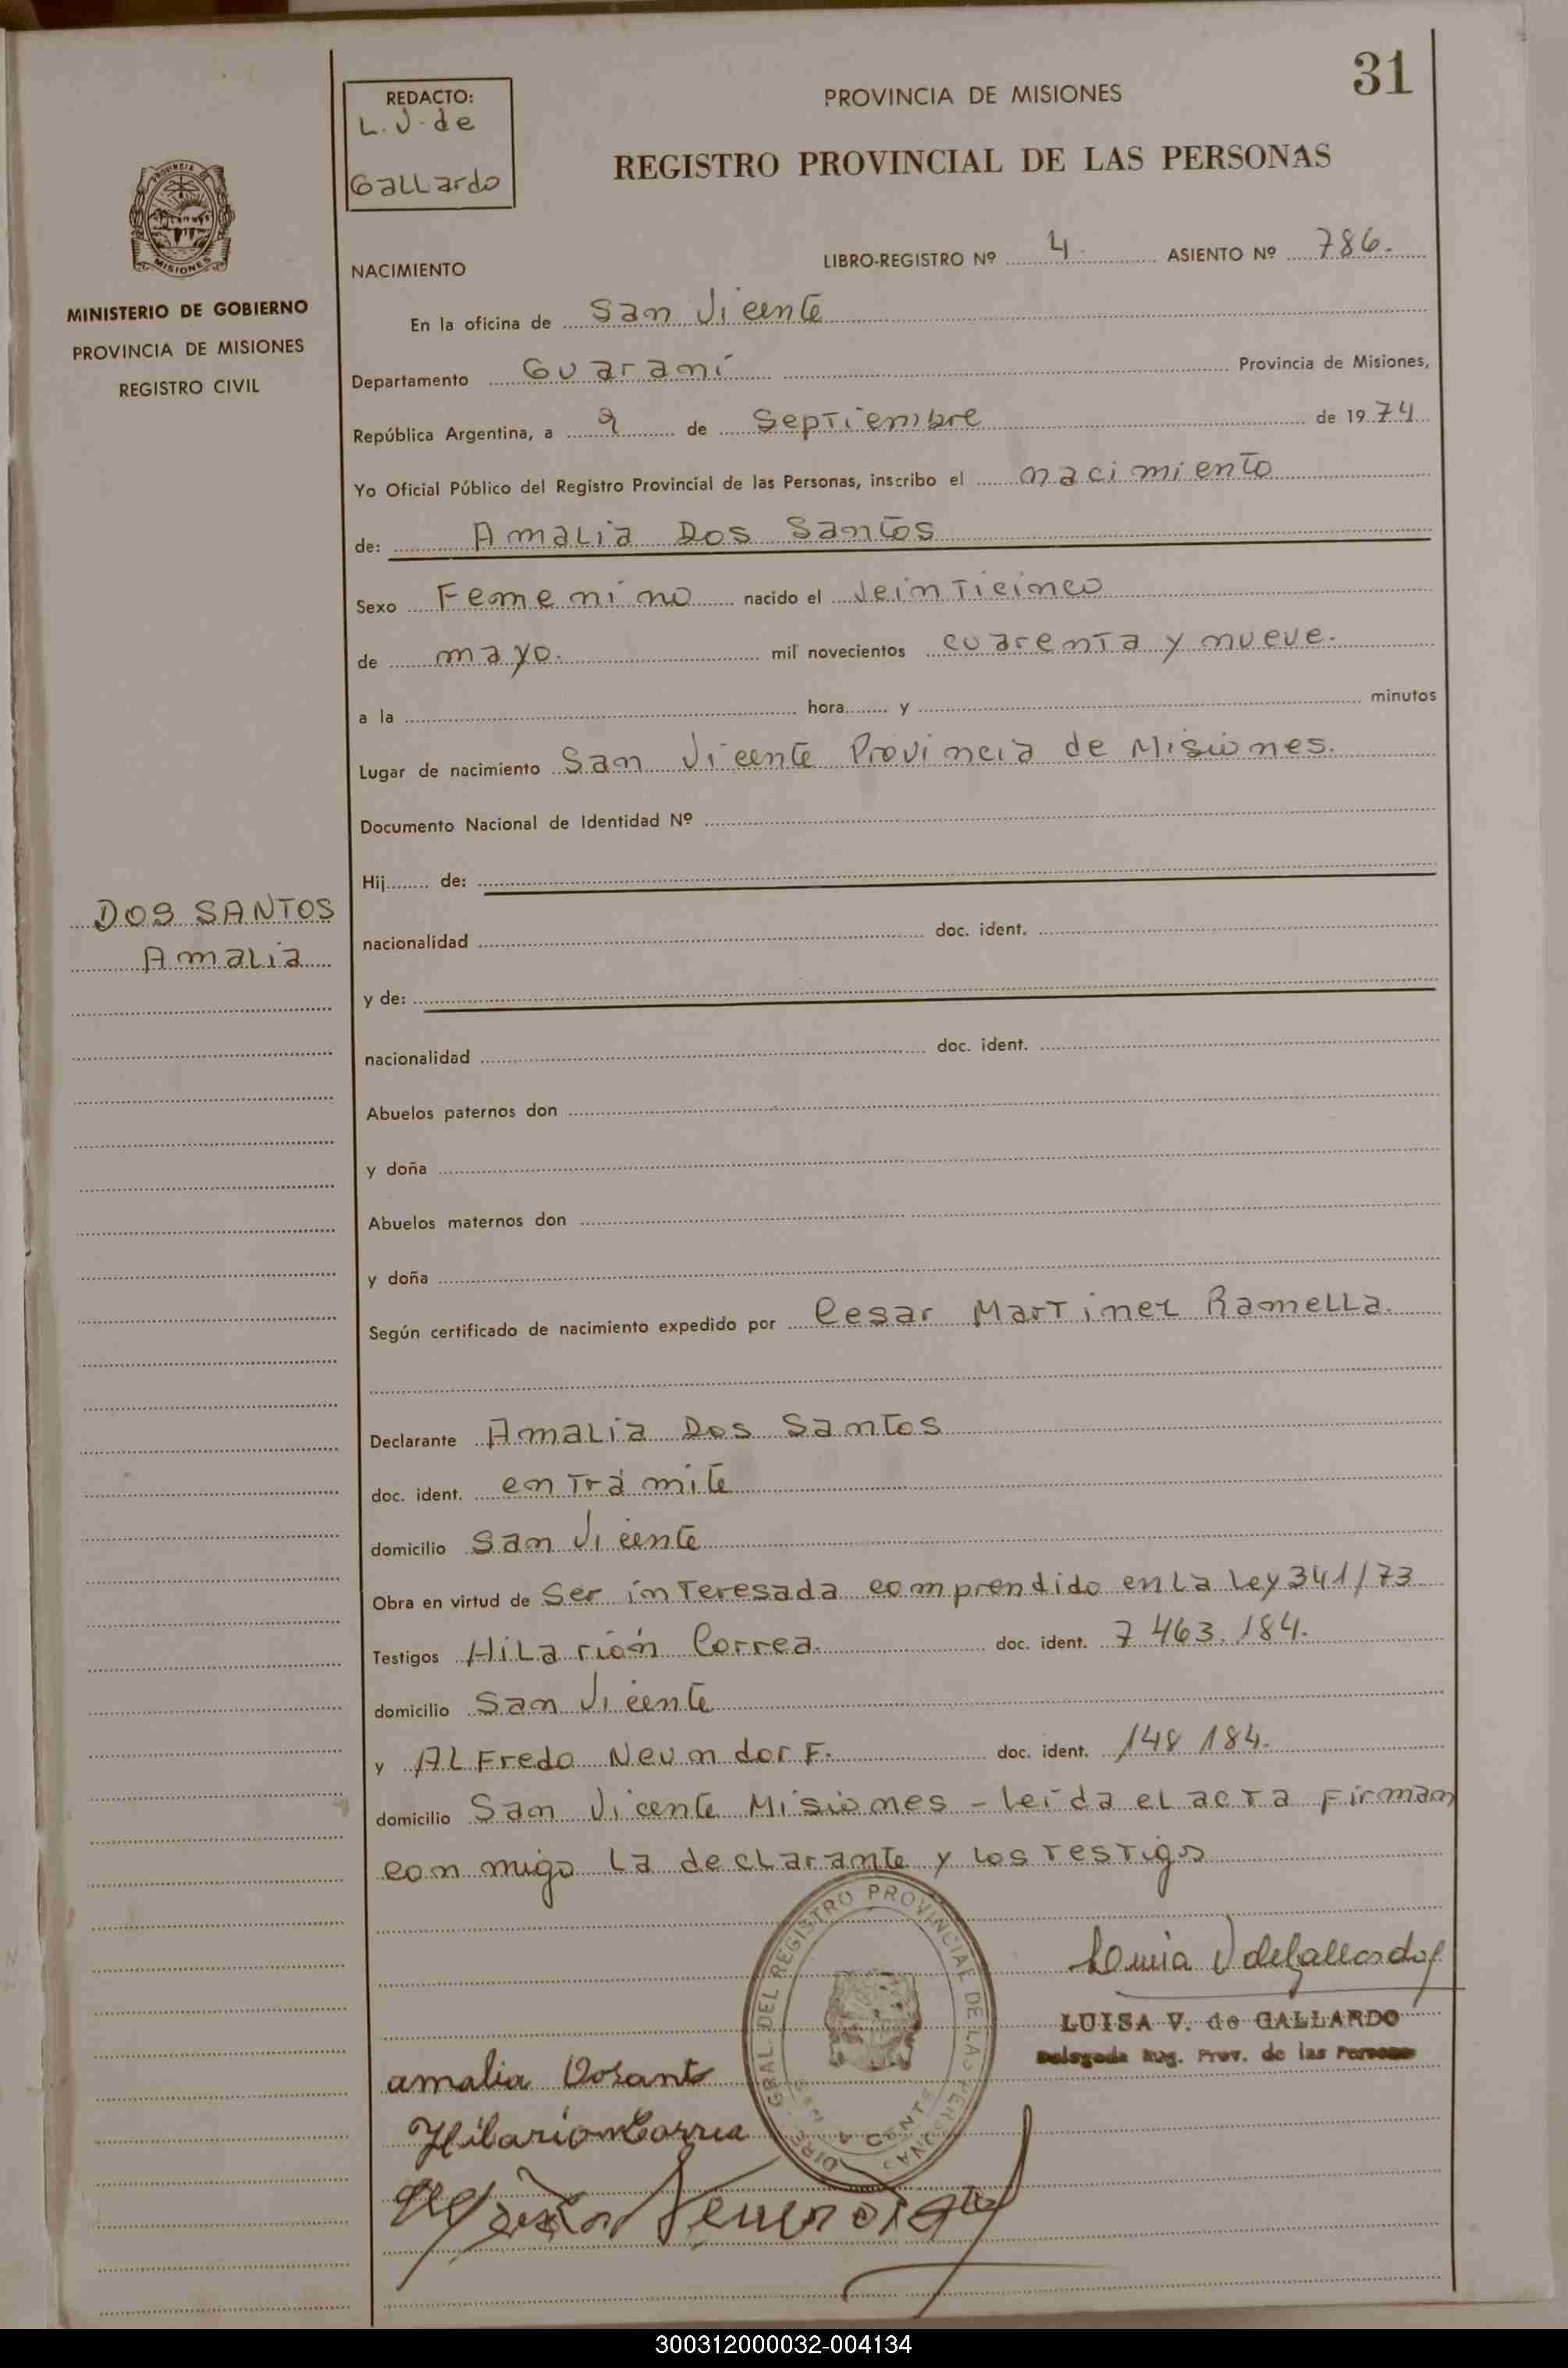 31
REDACTO:
L. V. de
Gallardo
PROVINCIA DE MISIONES
REGISTRO PROVINCIAL DE LAS PERSONAS
MISIONES
MINISTERIO DE GOBIERNO
PROVINCIA DE MISIONES
REGISTRO CIVIL
NACIMIENTO
LIBRO-REGISTRO Nº 4. ASIENTO Nº 786.
En la oficina de San Vicente
Departamento Guaraní Provincia de Misiones,
República Argentina, a 9 de Septiembre de 1974
Yo Oficial Público del Registro Provincial de las Personas, inscribo el nacimiento
de: Amalia Dos Santos
Sexo Femenino nacido el veinticinco
de mayo. mil novecientos cuarenta y nueve.
a la hora y minutos
Lugar de nacimiento San Vicente Provincia de Misiones.
Documento Nacional de Identidad Nº
Hij de:
DOS SANTOS
Amalia
nacionalidad doc. ident.
y de:
nacionalidad doc. ident.
Abuelos paternos don
y doña
Abuelos maternos don
y doña
Según certificado de nacimiento expedido por Cesar Martinez Ramella.
Declarante Amalia Dos Santos
doc. ident. en trámite
domicilio San Vicente
Obra en virtud de Ser interesada comprendido en la Ley 341/73
Testigos Hilarión Correa. doc. ident. 7 463.184.
domicilio San Vicente
y Alfredo Neundorf. doc. ident. 148 184.
domicilio San Vicente Misiones - leída el acta firman
conmigo la declarante y los testigos
DIRE. GRAL. DEL REGISTRO PROVINCIAL DE LAS PERSONAS
LUISA V. de GALLARDO
Delegada Reg. Prov. de las Personas
amalia Dosants
Hilarion Correa
300312000032-004134